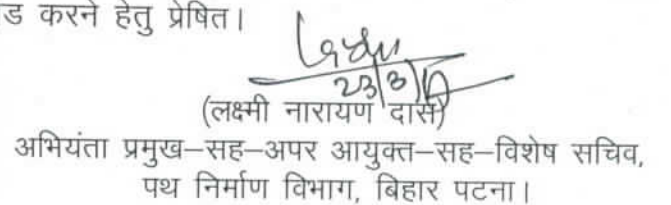 ड करने हेतु प्रेषित।
23/3/
(लक्ष्मी नारायण दास)
अभियंता प्रमुख–सह–अपर आयुक्त–सह–विशेष सचिव,
पथ निर्माण विभाग, बिहार पटना।